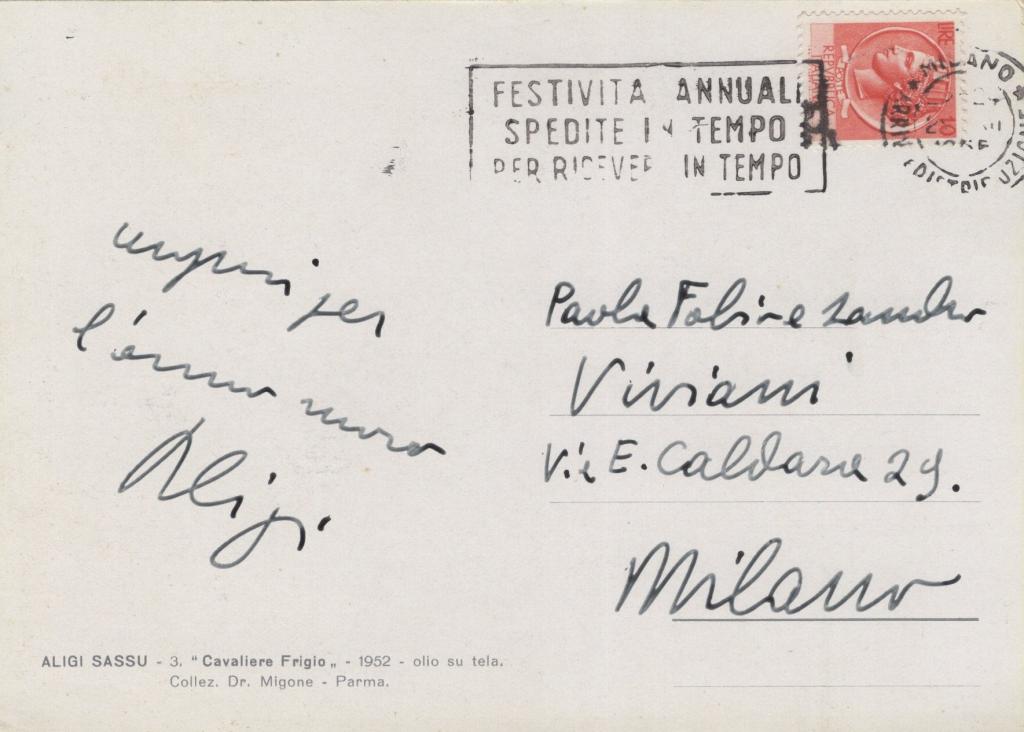 FESTIVITA ANNUALI
SPEDITE IN TEMPO
PER RICEVER IN TEMPO
LIRE 10
REPUBBLICA
MILANO
auguri per
l'anno nuovo
Aligi
Paola Fabio e Sandro
Viviani
Via E. Caldara 29.
Milano
ALIGI SASSU - 3. "Cavaliere Frigio„ - 1952 - olio su tela.
Collez. Dr. Migone - Parma.